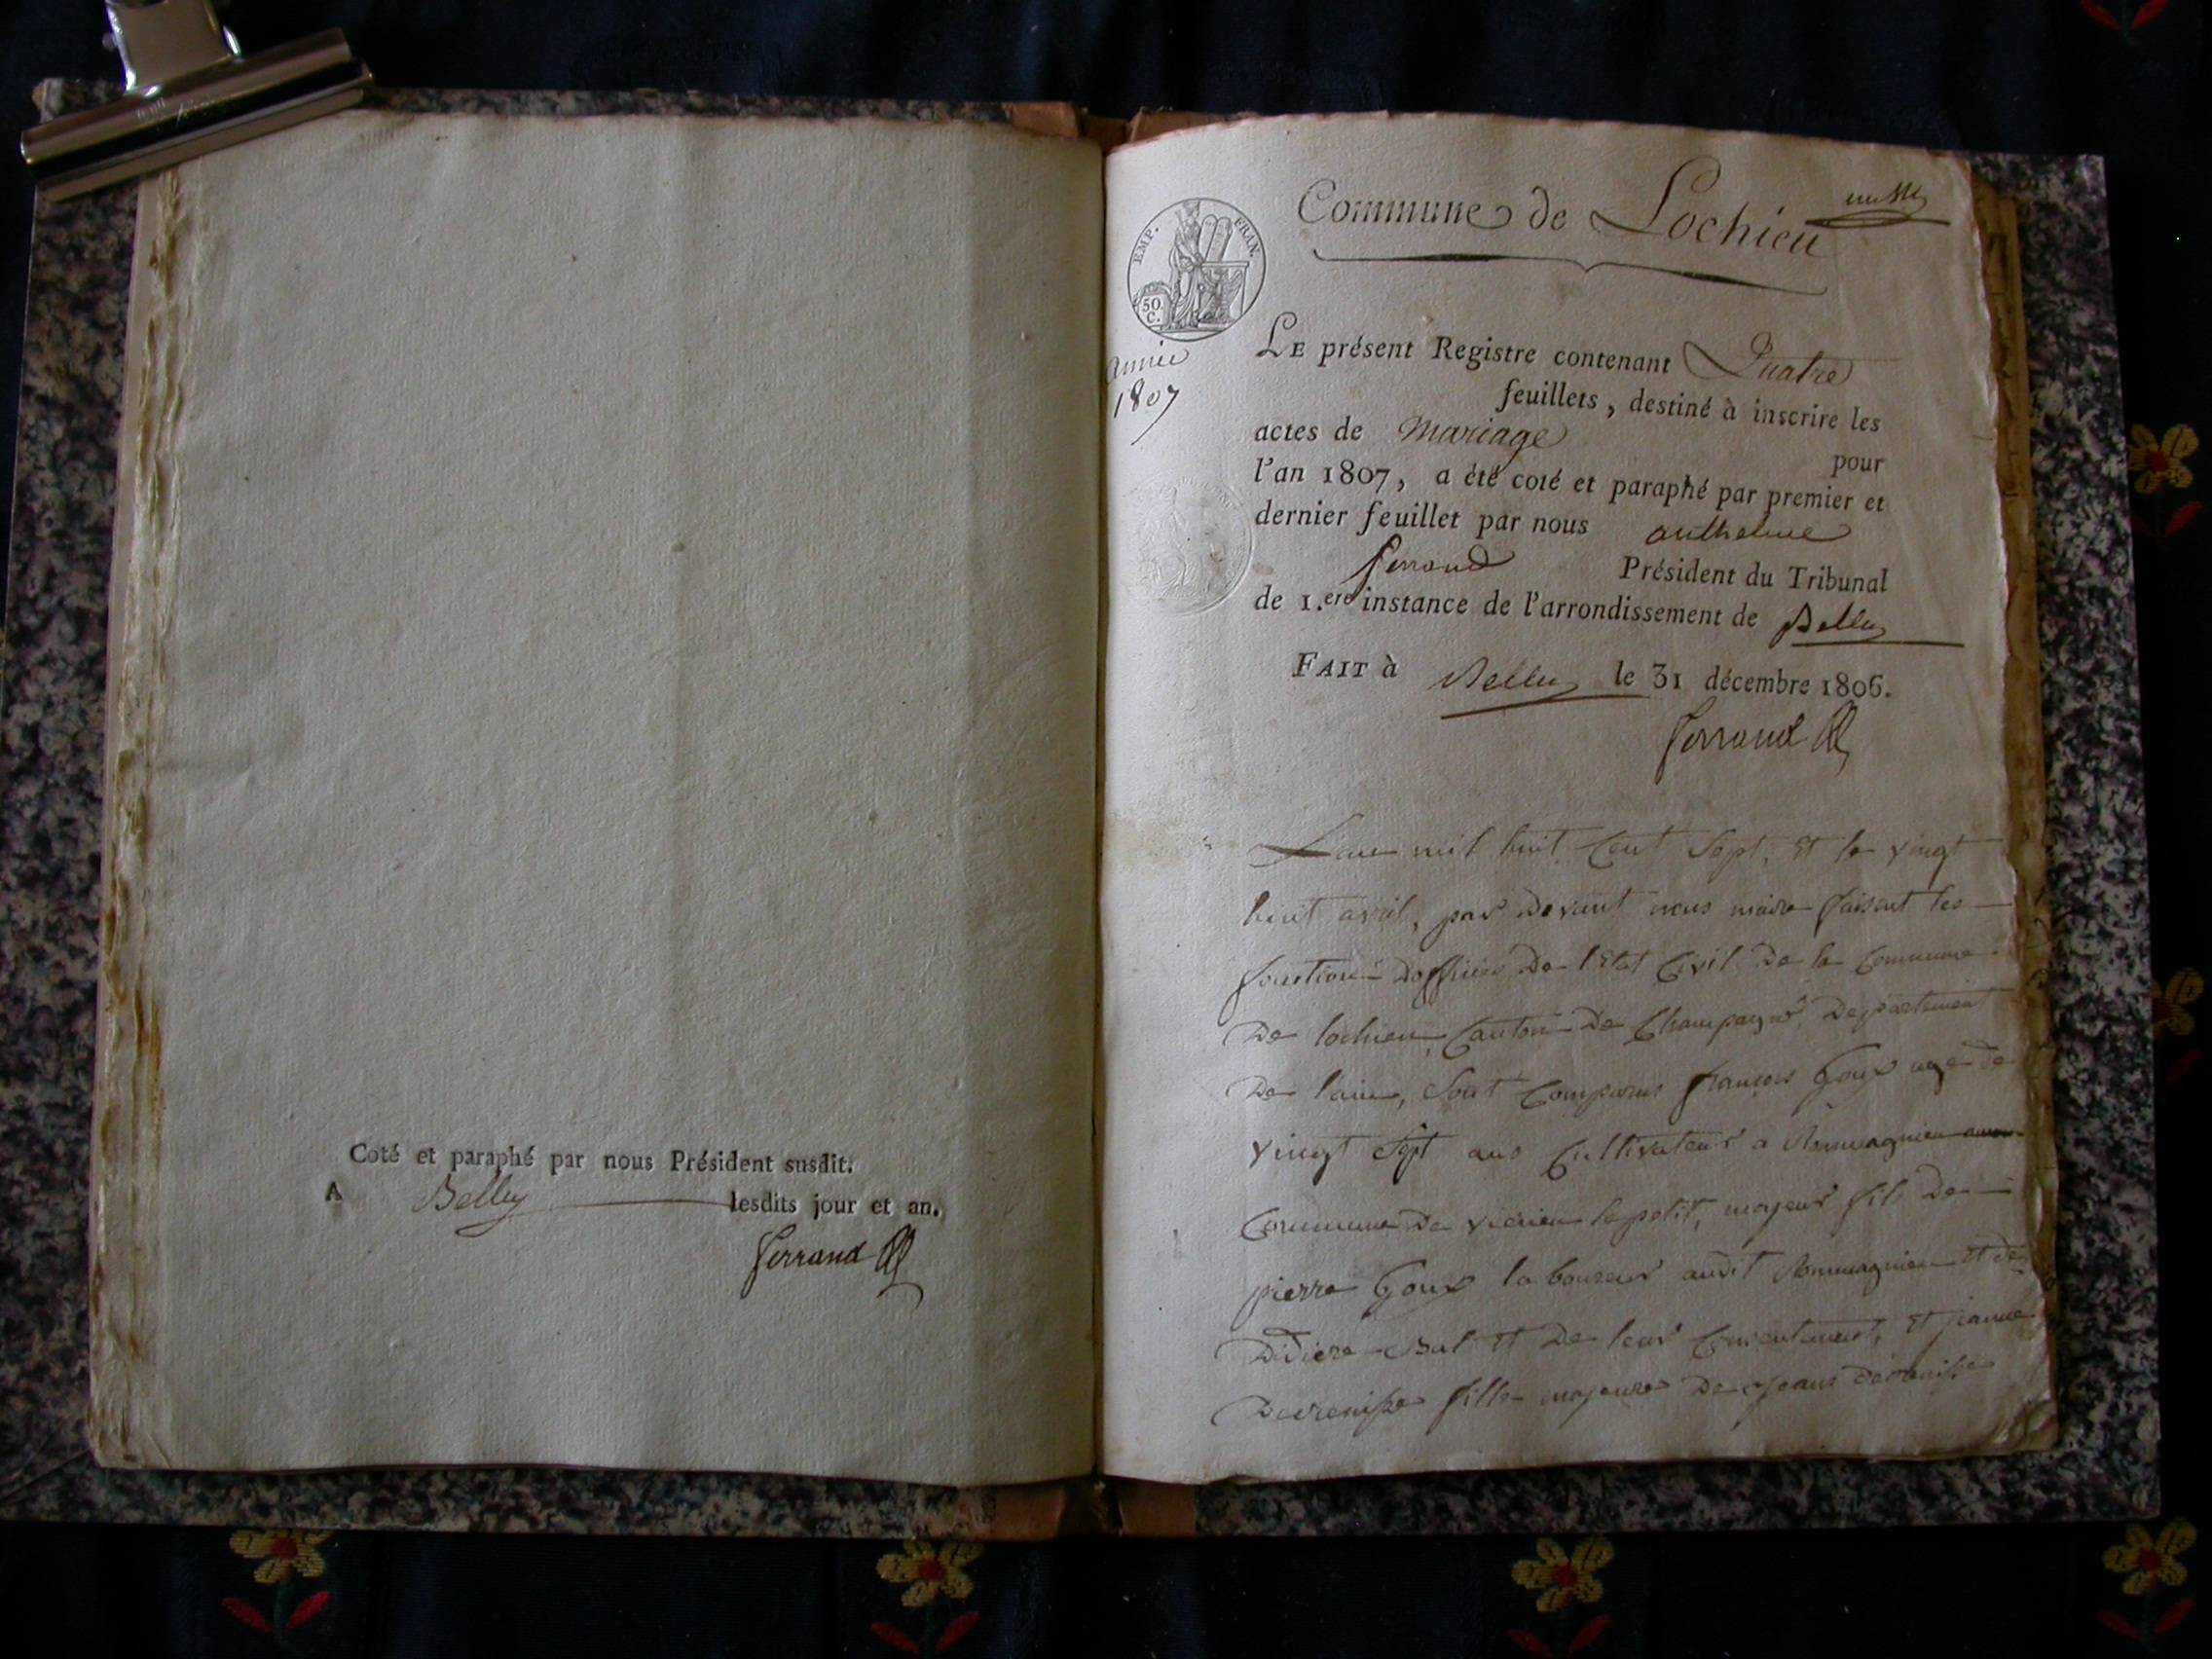 Coté et paraphé par nous Président susdit.
A Belley lesdits jour et an.
Ferrand
Commune de Lochieu
EMP. FRAN.
50 C.
année
1807
LE présent Registre contenant Quatre
feuillets, destiné à inscrire les
actes de mariage pour
l'an 1807, a été coté et paraphé par premier et
dernier feuillet par nous anthelme
ferrand Président du Tribunal
de 1.ere instance de l'arrondissement de Belley
FAIT à Belley le 31 décembre 1806.
Ferrand
Lan mil huit Cent Sept, et le vingt
huit avril, par devant nous maire faisant les
fonctions dofficier de letat Civil de la Commune
de lochieu, Canton de Champagne, departement
de lain, Sont Comparus françois Goux age de
vingt Sept ans Cultivateur a Rommagnieu
Commune de virieu le petit, majeur fils de
pierre Goux laboureur audit Rommagnieu et de
didiere et de leur Consentement, et jeanne
fille majeure de jeans